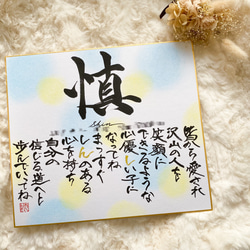 慎
Shin
皆から愛され
沢山の人を
笑顔に
できるような
心優しい子に
なってね
まっすぐ
しんのある
心を持ち
自分の
信じる道へと
歩んでいってね